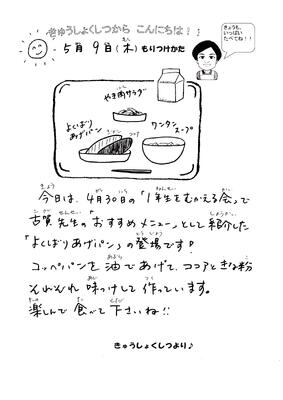 きゅうしょくしつから こんにちは!!
きょうも、
いっぱい
たべてね!!
5月 9日(木) もりつけかた
やき肉サラダ
よくばり
あげパン
ワンタン
スープ
今日は、4月30日の「1年生をむかえる会」で
古賀先生の「おすすめメニュー」として紹介した
「よくばりあげパン」の登場です!
コッペパンを油であげて、ココアときな粉
それぞれ味つけして作っています。
楽しんで食べて下さいね!!
きゅうしょくしつより♪